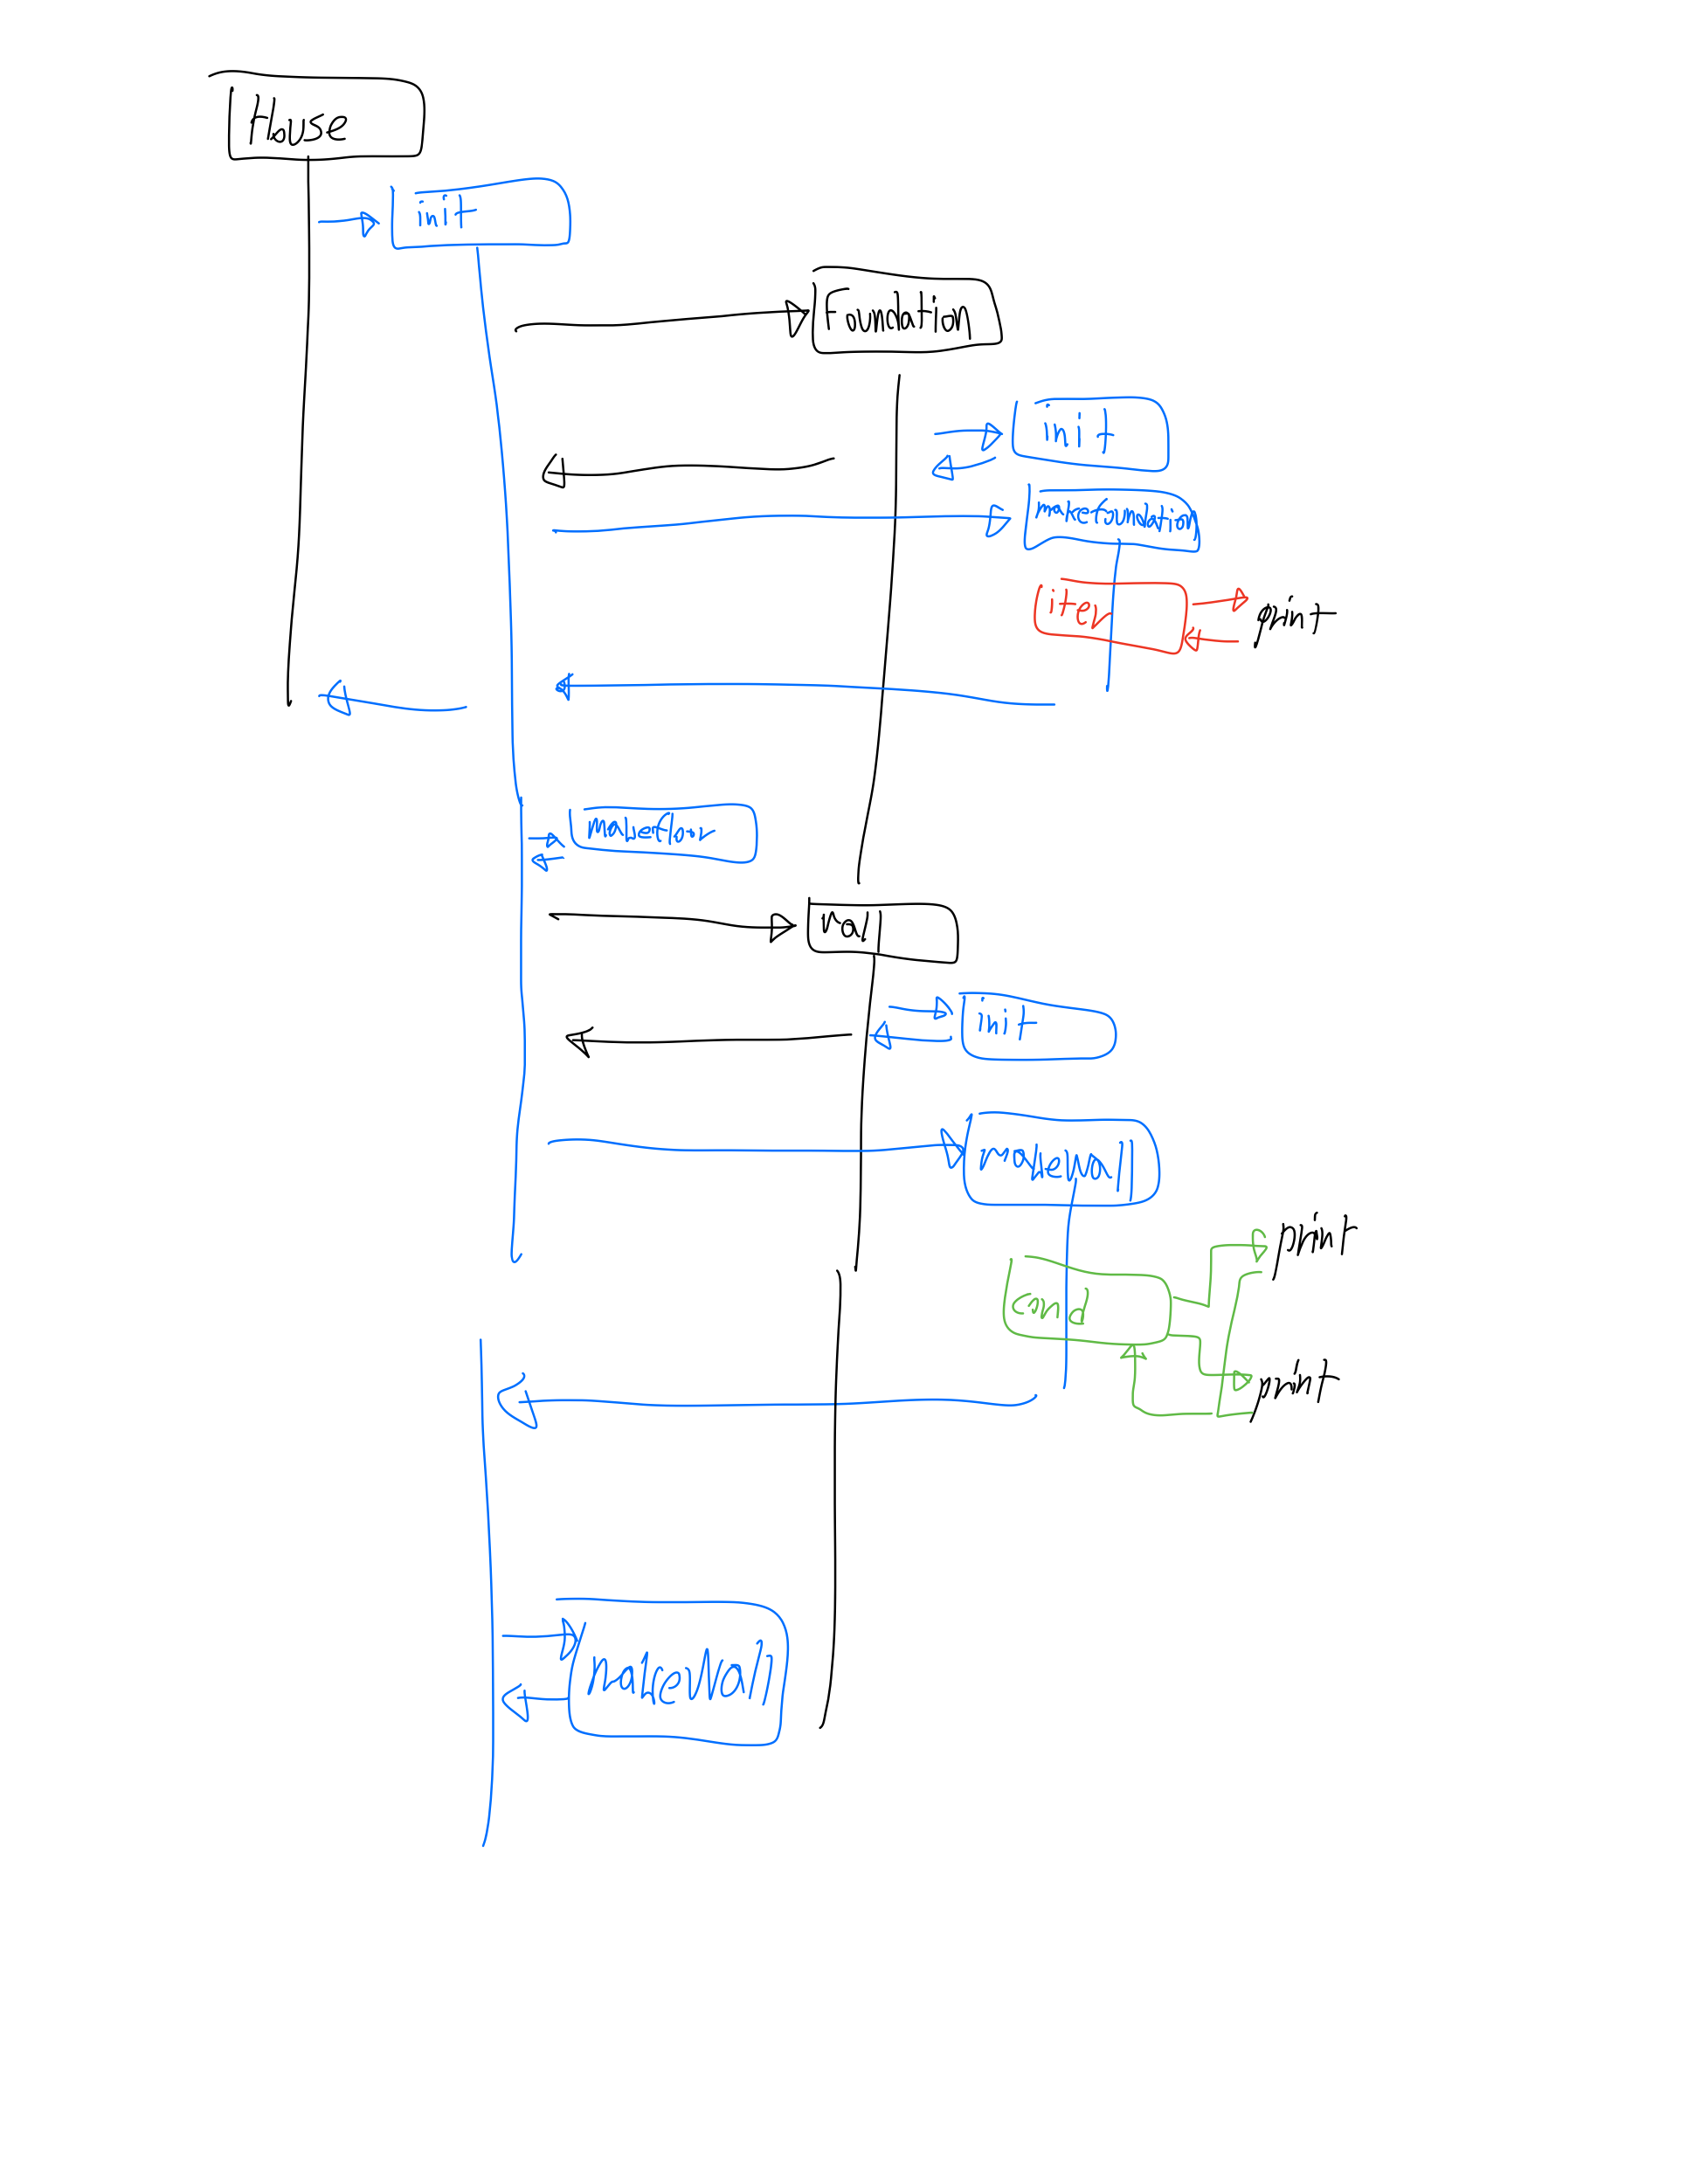 House
init
Foundation
init
makefoundation
iter
print
makeflor
init
makewall
print
cond
print
makewall